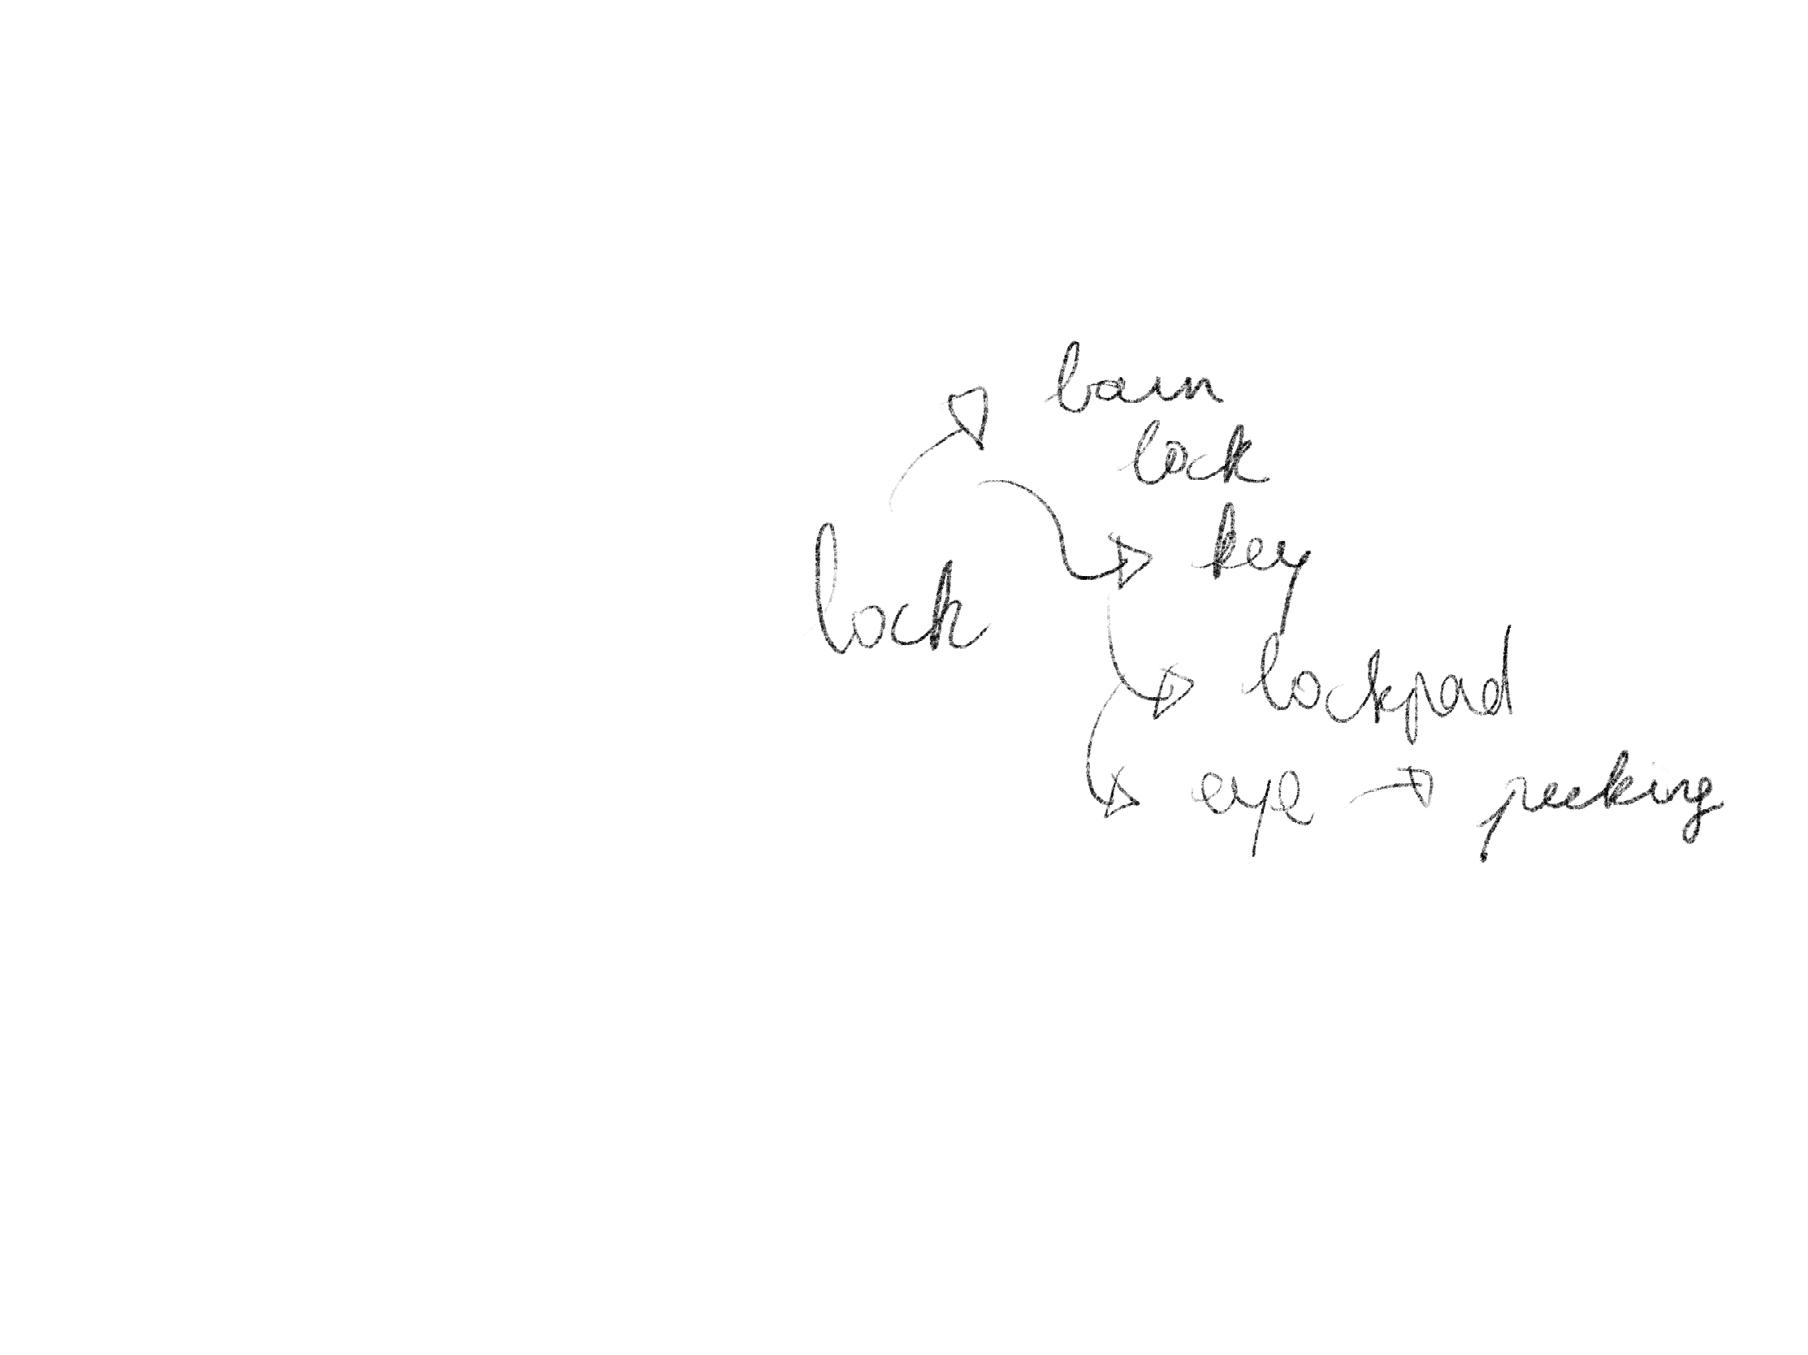 barn
lock
key
lock
lockpad
eye → peeking